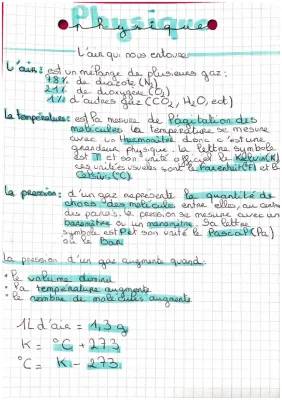 Physique
physique
L'air qui nous entoure
L'air : est un mélange de plusieurs gaz :
78% de diazote (N₂)
21% de dioxygène (O₂)
1% d'autres gaz (CO₂, H₂O, ect)
La température : est la mesure de l'agitation des
molécules. La température se mesure
avec un thermomètre donc c'est une
grandeur physique. La lettre symbole
est T et son unité officiel le Kelvin (K)
ces unités usuels sont le Farenheit (F) et le
Celsius (°C)
La pression : d'un gaz représente la quantité de
chocs des molécules entre elles, au contre
des parois. La pression se mesure avec un
baromètre ou un manomètre. Sa lettre
symbole est P et son unité le Pascal (Pa)
ou le bar
La pression d'un gaz augmente quand :
• le volume diminue
• la température augmente
• le nombre de molécules augmente
1L d'air = 1,3 g
K = °C + 273
°C = K - 273